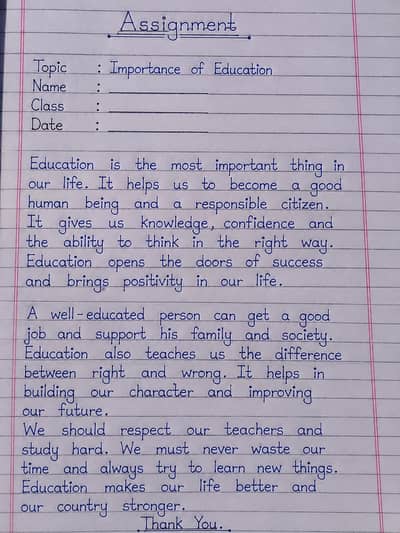 Assignment
Topic : Importance of Education
Name : ____________
Class : ____________
Date : ____________
Education is the most important thing in
our life. It helps us to become a good
human being and a responsible citizen.
It gives us knowledge, confidence and
the ability to think in the right way.
Education opens the doors of success
and brings positivity in our life.
A well-educated person can get a good
job and support his family and society.
Education also teaches us the difference
between right and wrong. It helps in
building our character and improving
our future.
We should respect our teachers and
study hard. We must never waste our
time and always try to learn new things.
Education makes our life better and
our country stronger.
Thank You.